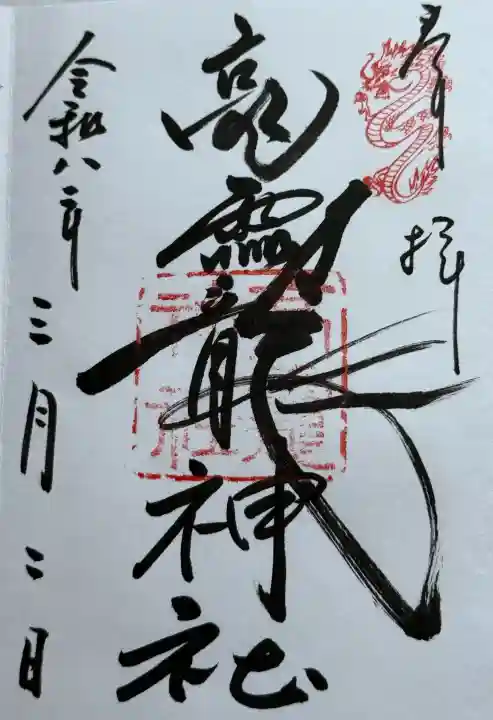 奉拝
高龗神社
令和八年三月二日